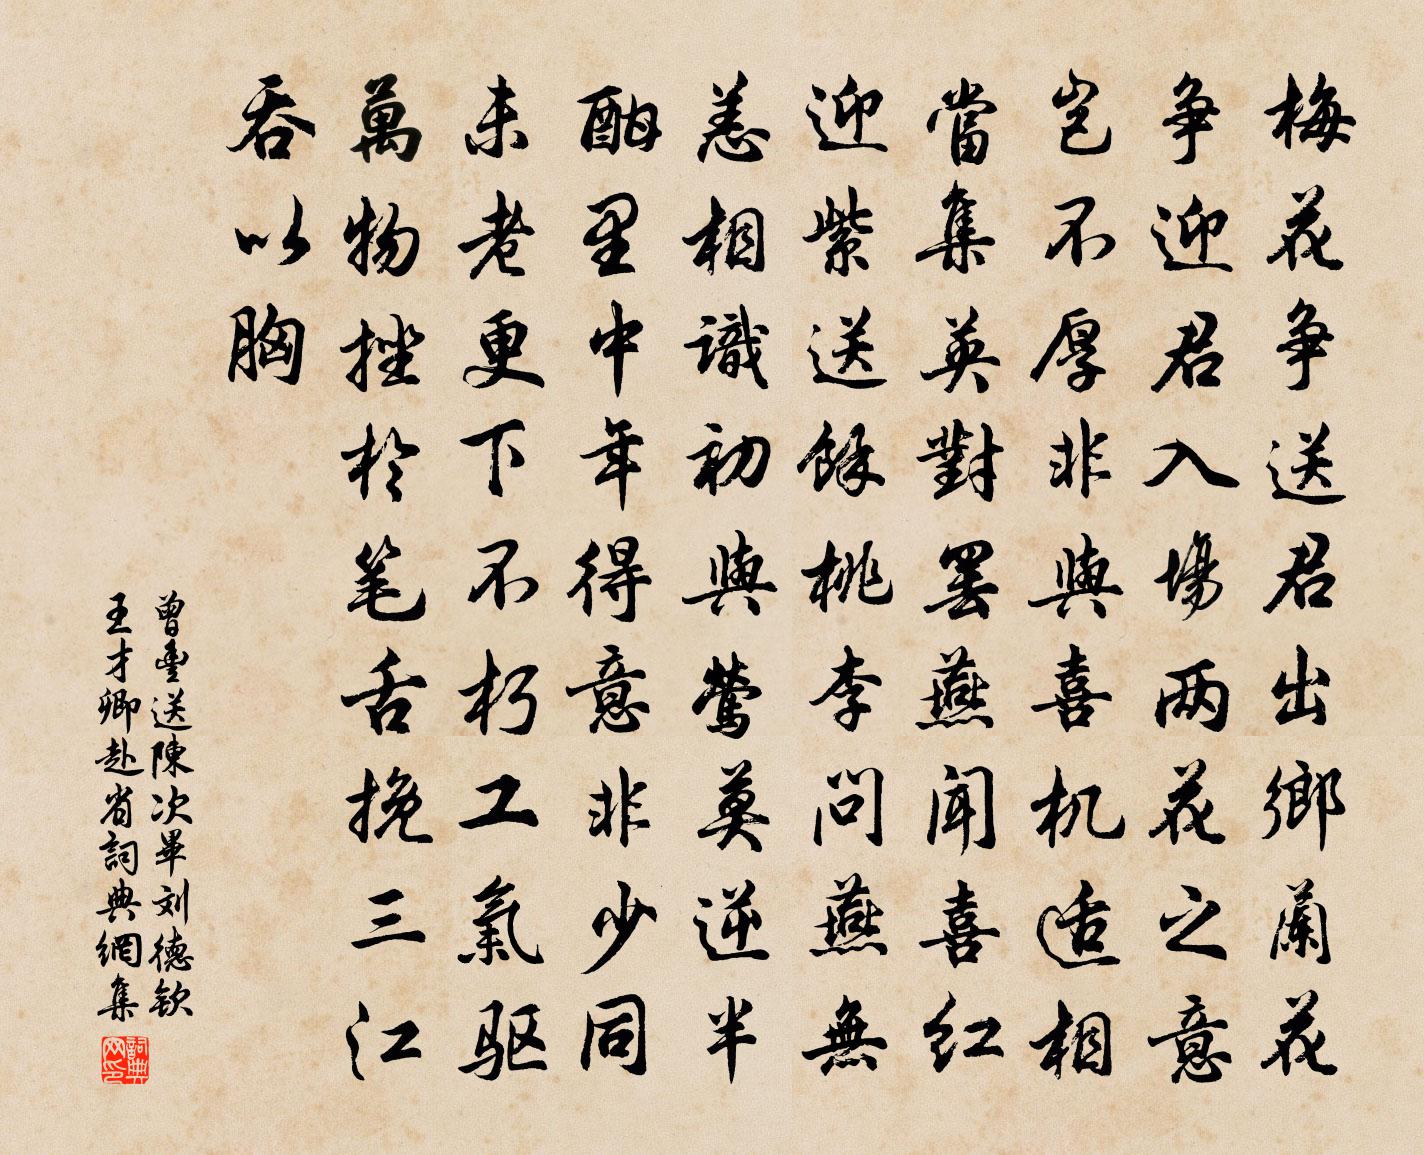 梅花争送君出鄉蘭花
争迎君入場两花之意
岂不厚非與喜机适相
當集英對罢燕闻喜红
迎紫送餘桃李问燕無
恙相識初與鶯莫逆半
酣里中年得意非少同
未老更下不朽工氣驱
萬物挫於笔舌挽三江
吞以胸
曾豐送陳次畢刘德钦
王才卿赴省詞典網集
詞典网印